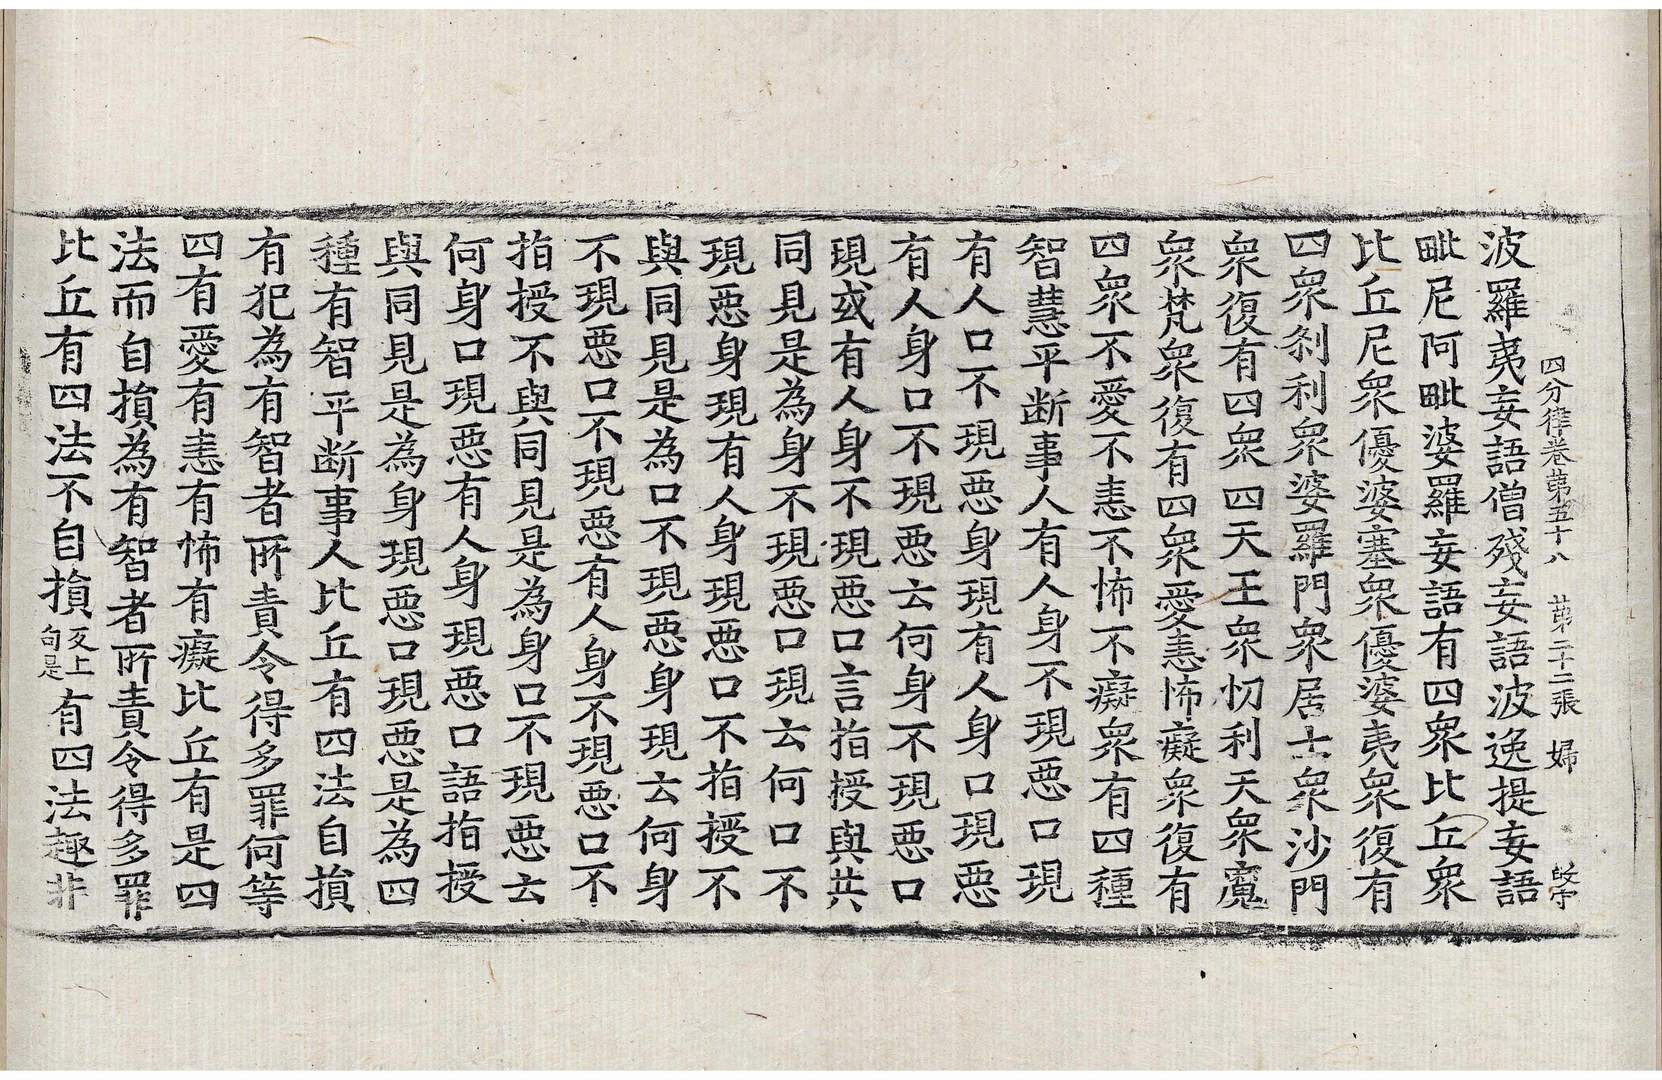 四分律卷第五十八 第二十二張 婦
波羅夷妄語僧殘妄語波逸提妄語
毗尼阿毗婆羅妄語有四衆比丘衆
比丘尼衆優婆塞衆優婆夷衆復有
四衆剎利衆婆羅門衆居士衆沙門
衆復有四衆四天王衆忉利天衆魔
衆梵衆復有四衆愛恚怖癡衆復有
四衆不愛不恚不怖不癡衆有四種
智慧平斷事人有人身不現惡口現
有人口不現惡身現有人身口現惡
有人身口不現惡云何身不現惡口
現或有人身不現惡口言指授與共
同見是為身不現惡口現云何口不
現惡身現有人身現惡口不指授不
與同見是為口不現惡身現云何身
不現惡口不現惡有人身不現惡口不
指授不與同見是為身口不現惡云
何身口現惡有人身現惡口語指授
與同見是為身現惡口現惡是為四
種有智平斷事人比丘有四法自損
有犯為有智者所責令得多罪何等
四有愛有恚有怖有癡比丘有是四
法而自損為有智者所責令得多罪
比丘有四法不自損反上句是有四法趣非